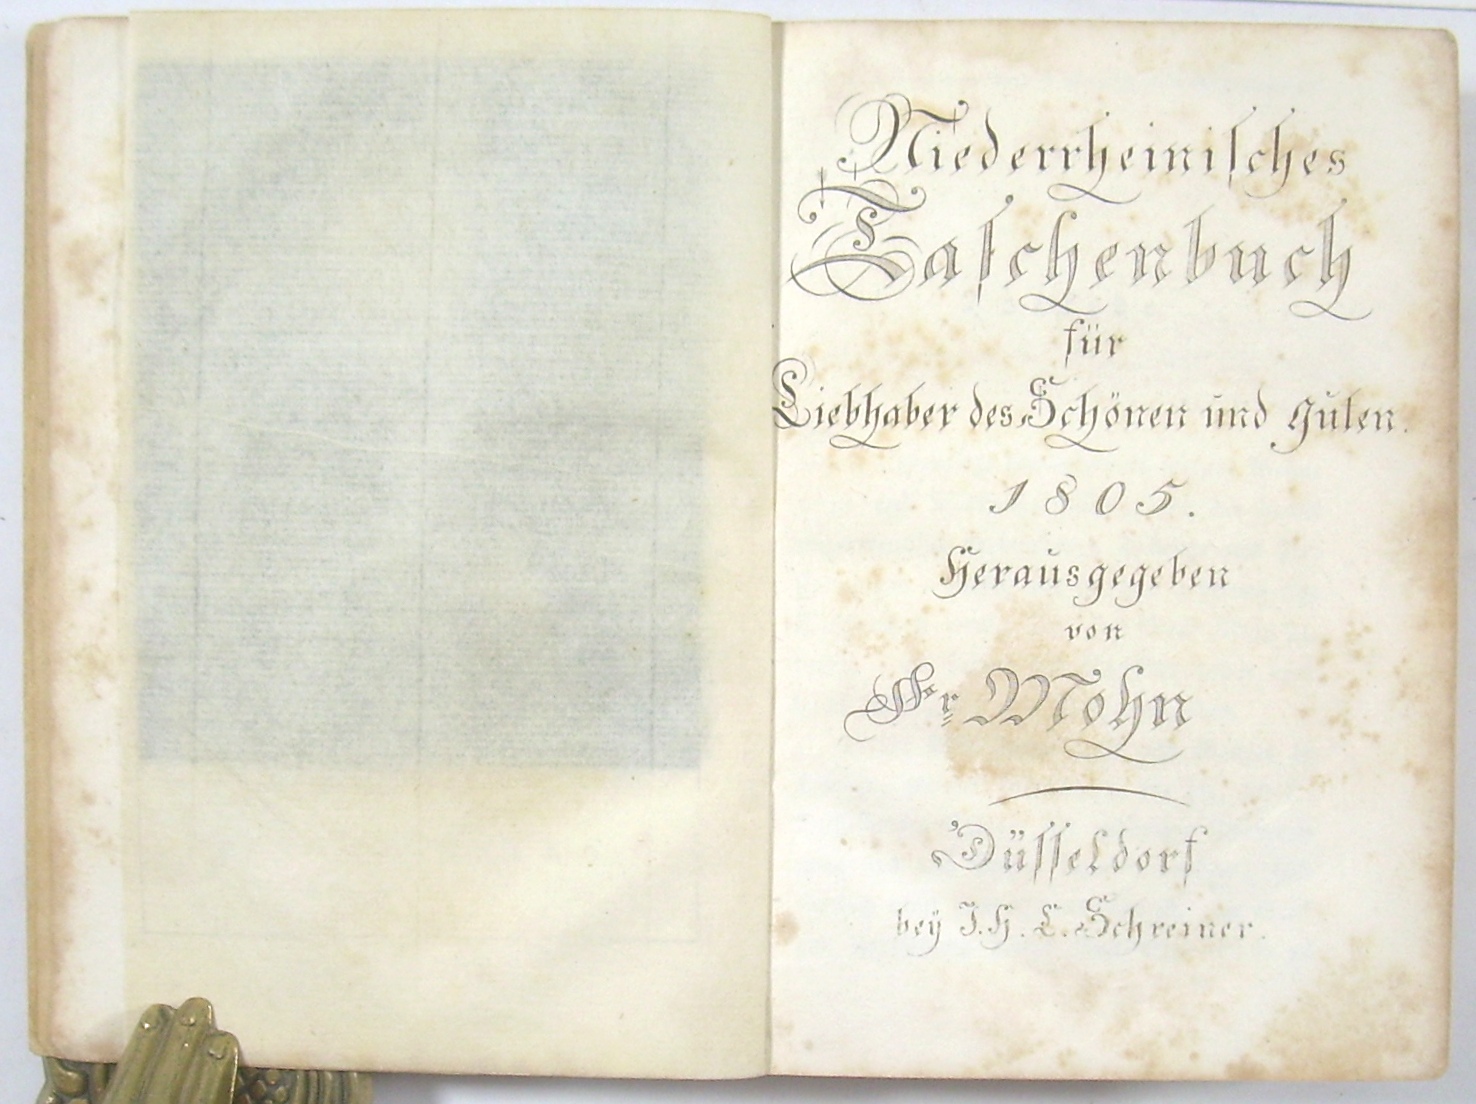 Niederrheinisches
Taschenbuch
für
Liebhaber des Schönen und Guten.
1805.
Herausgegeben
von
Fr Mohn
Düsseldorf
bey J. H. C. Schreiner.